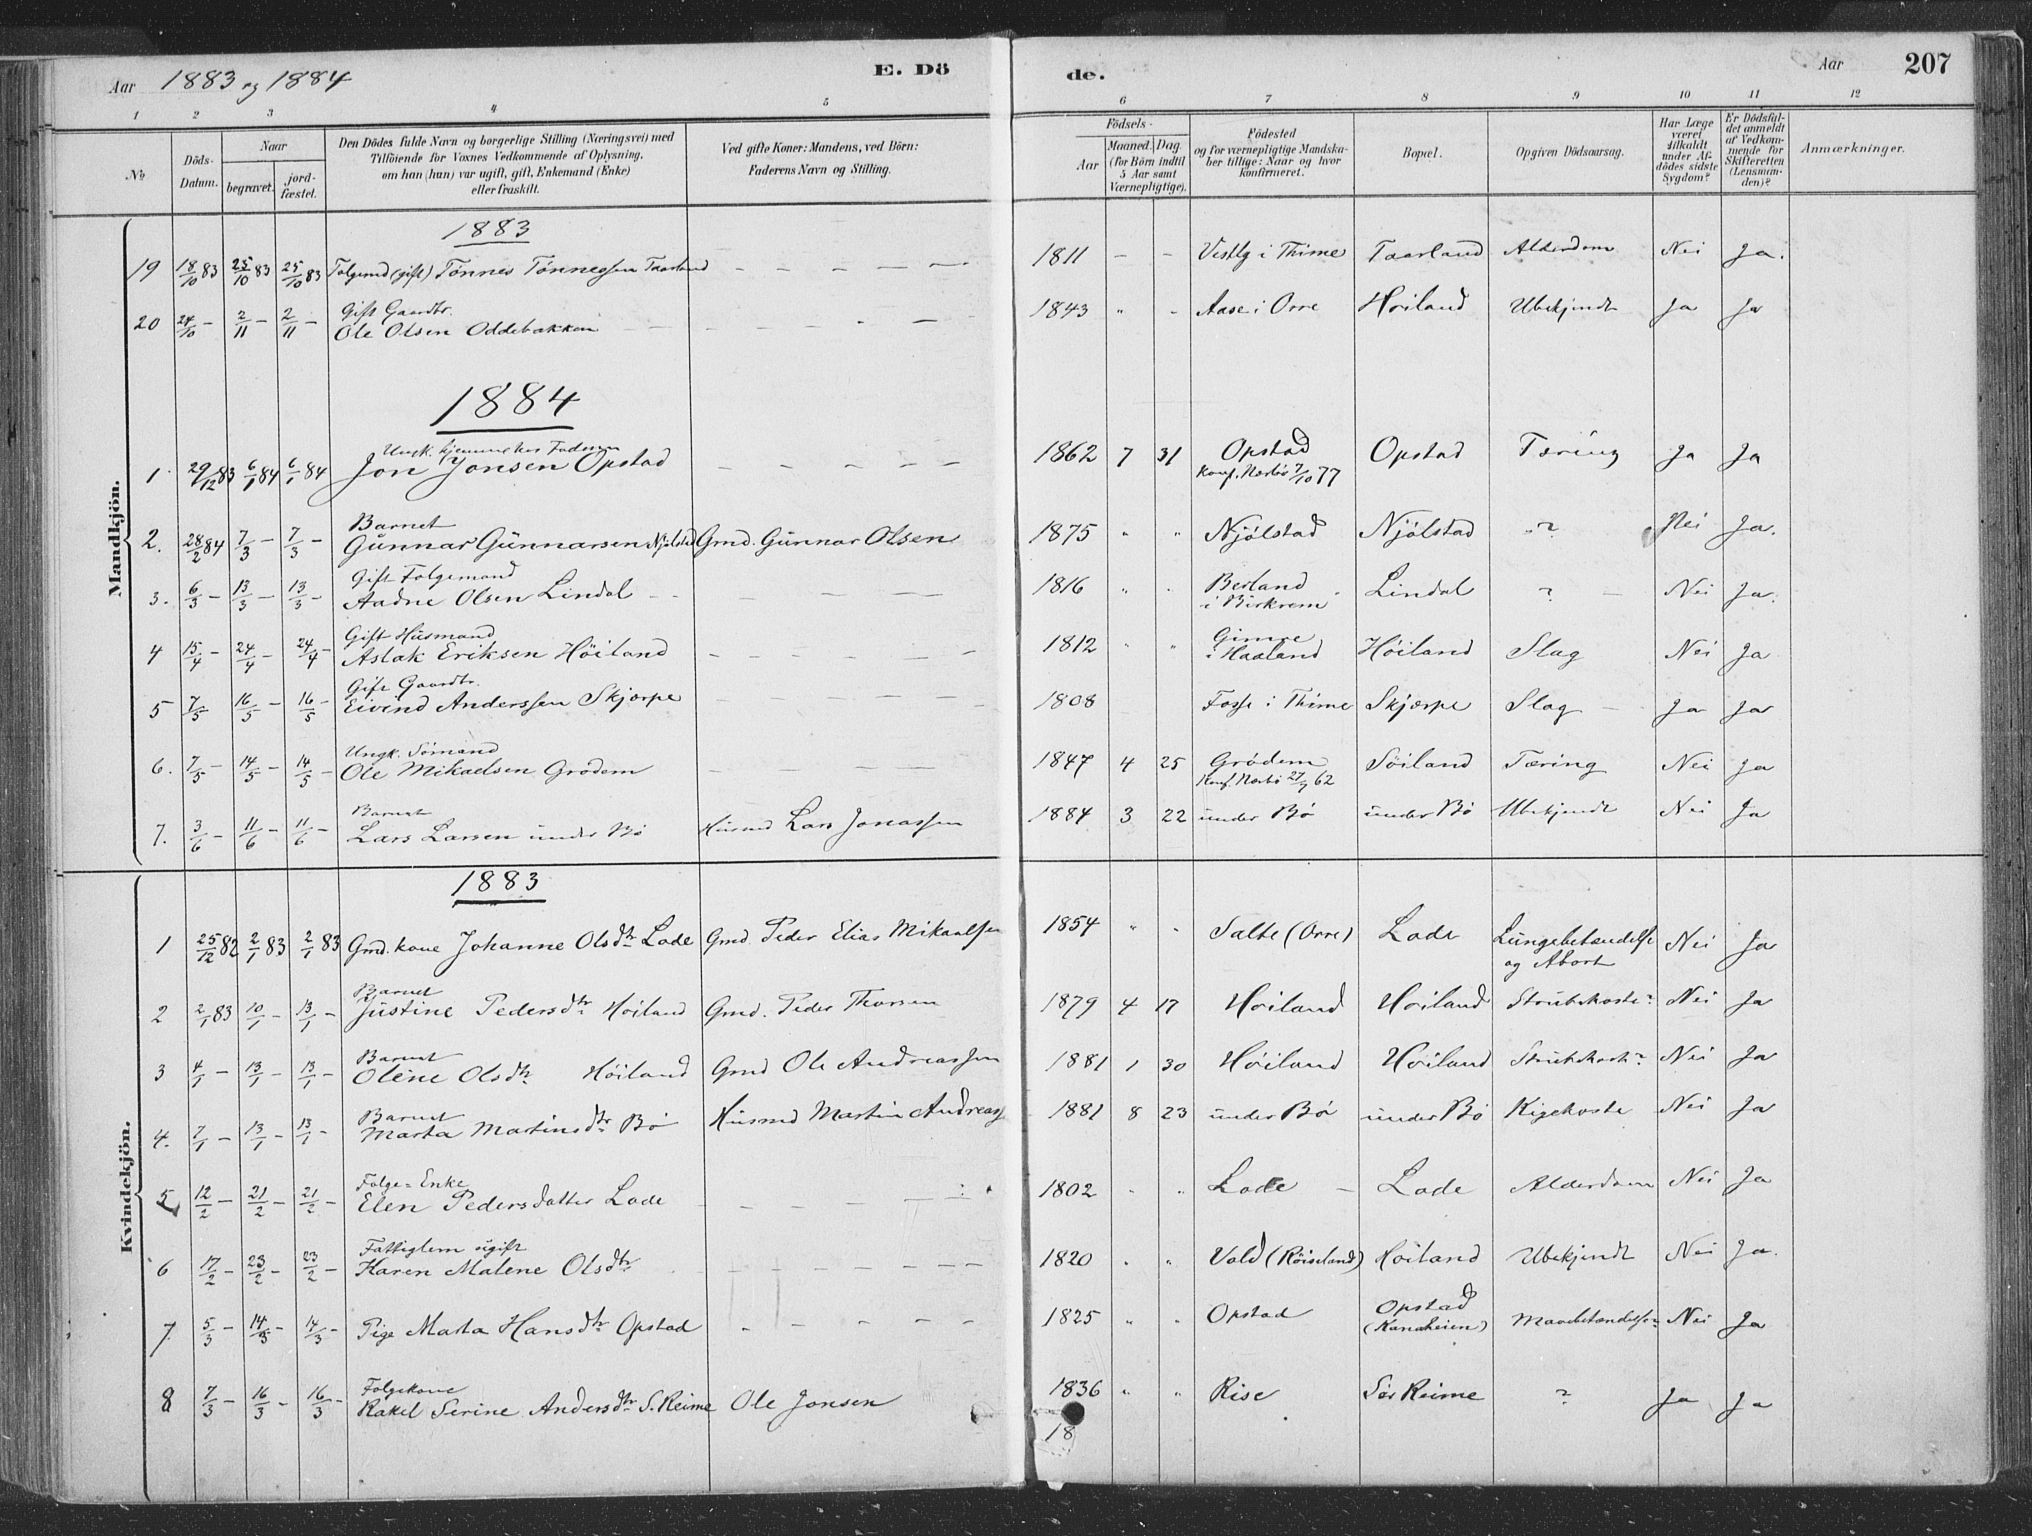 Aar 1883 og 1884 E. Dö de. Aar 207
1 2 3 4 5 6 7 8 9 10 11 12
No
Döds-Datum.
Naar
begravet.
jord-fæstet.
Den Dödes fulde Navn og borgerlige Stilling (Næringsvei) med
Tilföiende for Voxnes Vedkommende af Oplysning,
om han (hun) var ugift, gift, Enkemand (Enke)
eller fraskilt.
Ved gifte Koner: Mandens, ved Börn:
Faderens Navn og Stilling.
Födsels-
Aar
Maaned. Dag.
(for Börn indtil
5 Aar samt
Værnepligtige).
Födested
og for værnepligtige Mandska-
ber tillige: Naar og hvor
konfirmeret.
Bopæl.
Opgiven Dödsaarsag.
Har Læge
været
tilkaldt
under Af-
dödes sidste
Sygdom?
Er Dödsfal-
det anmeldt
af Vedkom-
mende for
Skifteretten
(Lensman-
den)?
Anmærkninger.
Mandkjön.
1883
19 18/10 83 25/10 83 25/10 83 Folgemd (gift) Tönnes Tönnessen Taarland — — — — — 1811 — — Vestly i Thime Taarland Alderdom Nei Ja.
Gift Gaardbr.
20 24/10 — 2/11 — 2/11 — Ole Olsen Oddebakken — — — — 1843 " " Aase i Orre Höiland Ubekjendt Ja Ja
1884
Ungk. hjemme hos Faderen
1. 29/12 83 6/1 84 6/1 84 Jon Jonsen Opstad — — — — — 1862 7 31 Opstad Opstad Tæring Ja Ja
Konf. Nærbö 7/10 77
Barnet
2. 28/2 84 7/3 — 7/3 — Gunnar Gunnarsen Njölstad Gmd. Gunnar Olsen 1875 " " Njölstad Njölstad ? Nei Ja.
Gift Folgemand
3. 6/3 — 13/3 — 13/3 — Aadne Olsen Lindal — — — — 1816 " " Berland i Birkrem Lindal ? — Nei Ja.
Gift Husmand
4 15/4 — 24/4 — 24/4 — Aslak Eriksen Höiland — — — — — 1812 " " Gimre i Haaland Höiland Slag Nei Ja
Gift Gaardbr.
5 7/5 16/5 — 16/5 — Eivind Anderssen Skjærpe — — — — 1808 Fosse i Thime Skjærpe Slag — Ja Ja
Ungk. Sömand
6. 7/5 — 14/5 — 14/5 — Ole Mikaelsen Grödem — — — — — 1847 4 25 Grödem Söiland Tæring Nei Ja
Konf. Nærbö 27/7 62
Barnet
7. 3/6 — 11/6 — 11/6 — Lars Larsen under Bö Husmd Lars Jonassen 1884 3 22 under Bö under Bö Ubekjendt Nei Ja
Kvindekjön.
1883
1 25/12 82 2/1 83 2/1 83 Gmd. kone Johanne Olsdtr Lode Gmd. Peder Elias Mikaelsen 1854 " " Salte (Orre) Lode Lungebetændelse og Abort Nei Ja
Barnet
2 2/1 83 10/1 — 13/1 — Justine Pedersdtr Höiland Gmd. Peder Thorsen 1879 4 17 Höiland Höiland Strubehoste? Nei Ja
Barnet
3 4/1 — 13/1 — 13/1 — Oline Olsdtr Höiland Gmd Ole Andreassen 1881 1 30 Höiland Höiland Strubehoste? Nei Ja
Barnet
4. 7/1 — 13/1 — 13/1 — Marta Martinsdtr Bö Husmd Martin Andreass 1881 8 23 under Bö under Bö Kigehoste Nei Ja
Folge-Enke
5 12/2 — 21/2 — 21/2 — Elen Pedersdatter Lode — — — — 1802 " " Lode — Lode Alderdom Nei Ja
Fattiglem ugift
6 17/2 — 23/2 — 23/2 — Karen Malene Olsdtr — — — — — — 1820 " " Vold (Röiseland) Höiland Ubekjendt Nei Ja.
7. 5/3 — 14/3 — 14/3 — Pige Marta Hansdtr Opstad — — — — — 1825 " " Opstad Opstad (Kanaheien) Mavebetændelse? Nei Ja
Folgekone
8 7/3 — 16/3 — 16/3 — Rakel Serine Andersdtr S. Reime Ole Jonsen 1836 " " Rise Sör Reime ? Ja Ja
18